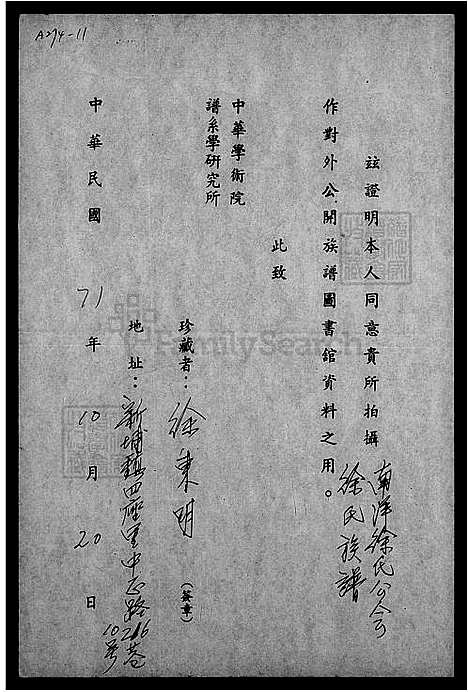 A274-11
茲證明本人同意貴所拍攝南洋徐氏公會
徐氏族譜
作對外公開族譜圖書館資料之用。
此致
中華學術院
譜系學研究所
珍藏者：徐東明（簽章）
地址：新埔鎮四座里中正路216巷
10號
中華民國71年10月20日
FamilySearch